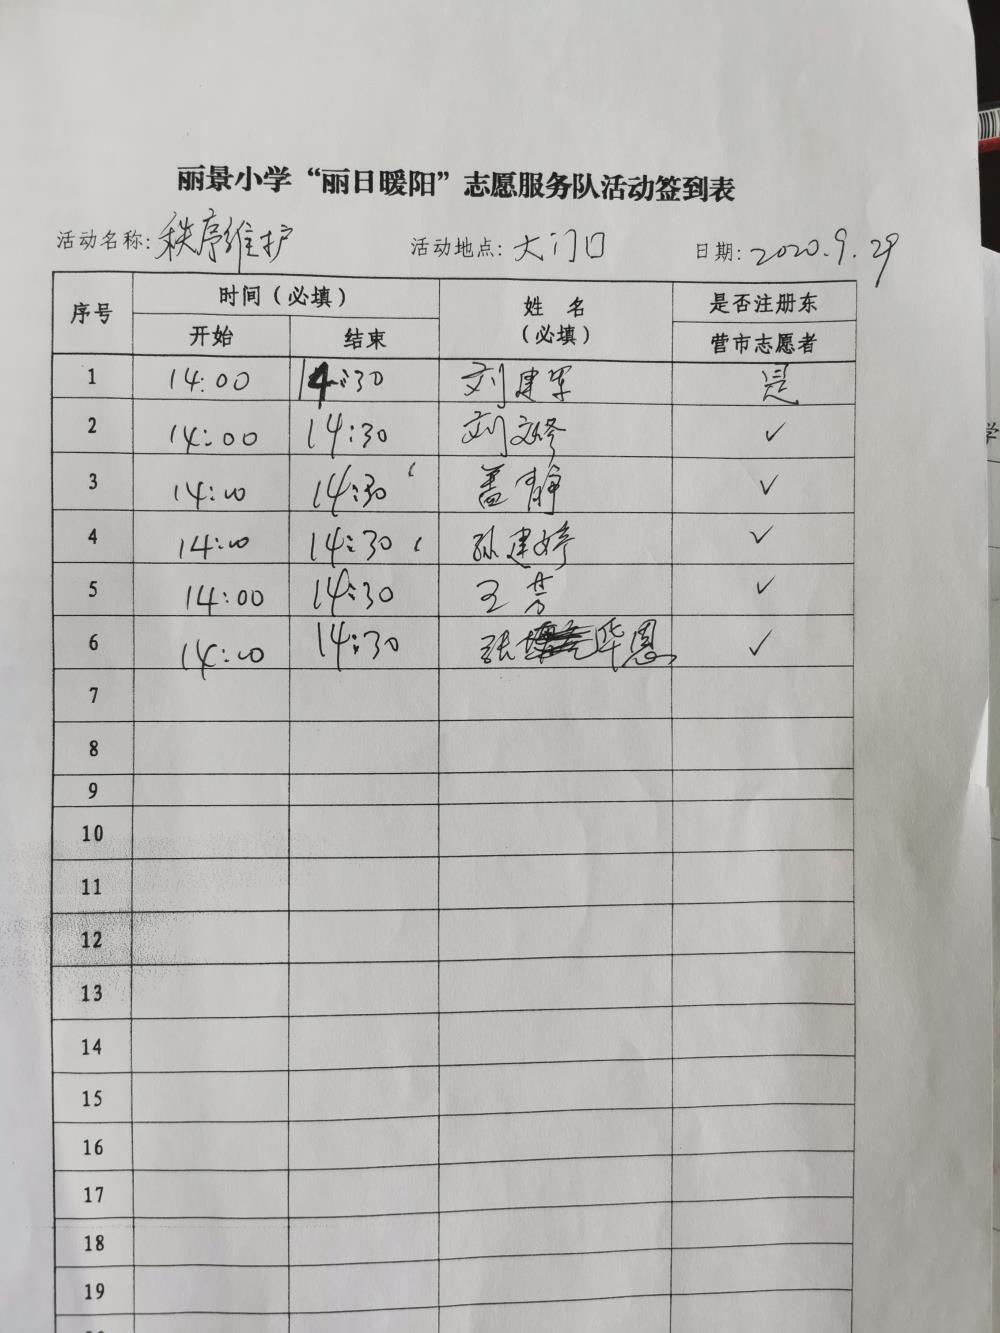 丽景小学“丽日暖阳”志愿服务队活动签到表
活动名称:秩序维护 活动地点:大门口 日期:2020.9.29
序号 时间(必填) 姓名(必填) 是否注册东营市志愿者
开始 结束
1 14:00 14:30 刘建军 是
2 14:00 14:30 刘文修 ✓
3 14:00 14:30 盖静 ✓
4 14:00 14:30 孙建婷 ✓
5 14:00 14:30 王芳 ✓
6 14:00 14:30 张华恩 ✓
7
8
9
10
11
12
13
14
15
16
17
18
19
学